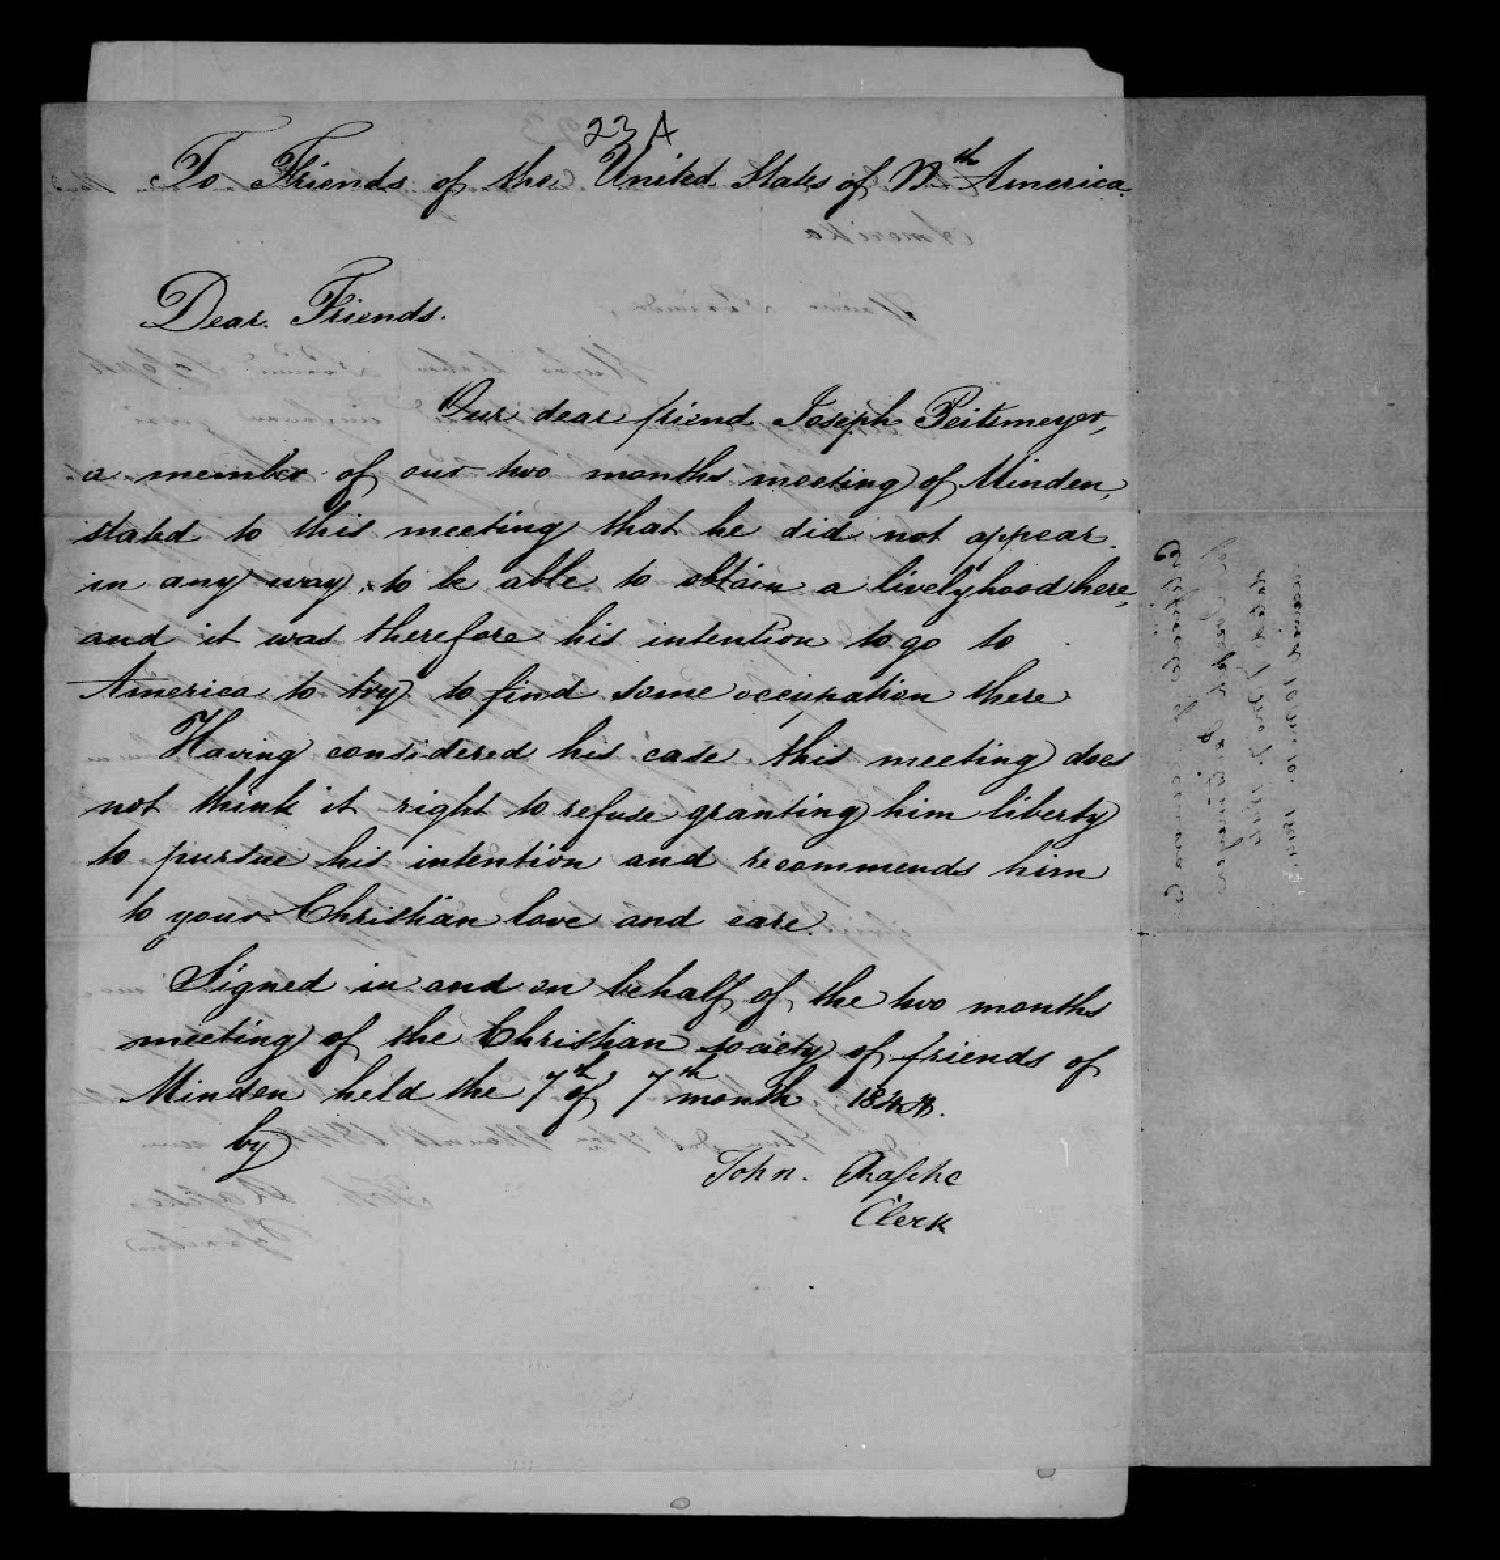 23 A
To Friends of the United States of Nth America.
Dear Friends.
Our dear friend Joseph Peitsmeyer,
a member of our two months meeting of Minden,
stated to this meeting that he did not appear
in any way, to be able to obtain a livelyhood here,
and it was therefore his intention to go to
America to try to find some occupation there
Having considered his case this meeting does
not think it right to refuse granting him liberty
to pursue his intention and recommends him
to your Christian love and care.
Signed in and on behalf of the two months
meeting of the Christian society of friends of
Minden held the 7th of 7th month
by
John.
Clerk